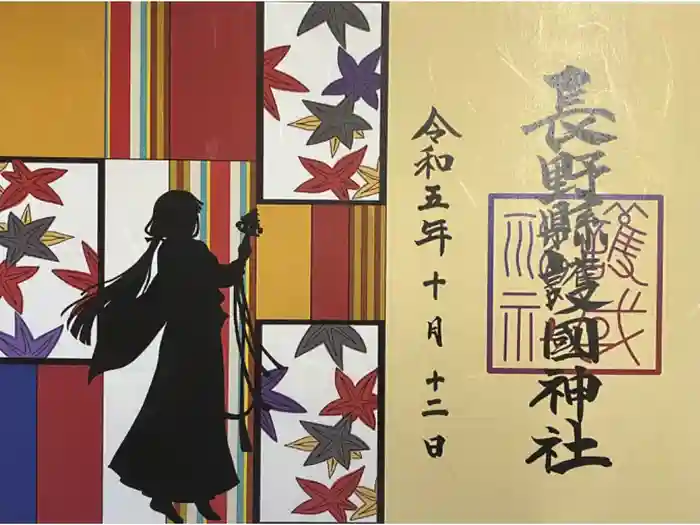 長野縣護國神社
令和五年十月十二日